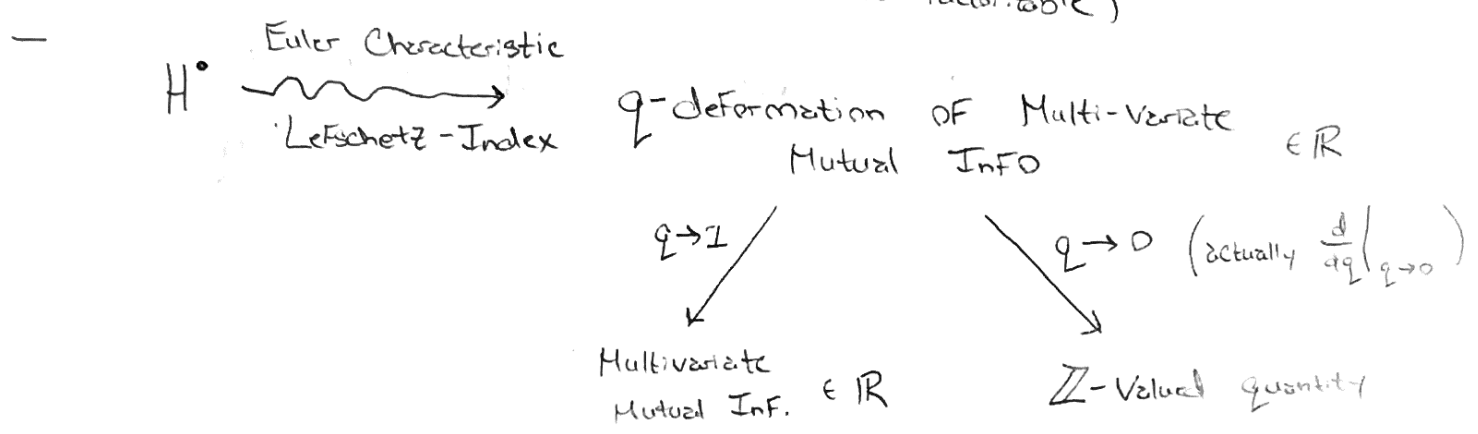 factorizable)
— Euler Characteristic
H•
Lefschetz-Index
q-deformation of Multi-Variate
Mutual Info ∈ ℝ
q→1
q→0 (actually d/dq|q→0)
Multivariate
Mutual Inf. ∈ ℝ
ℤ-valued quantity